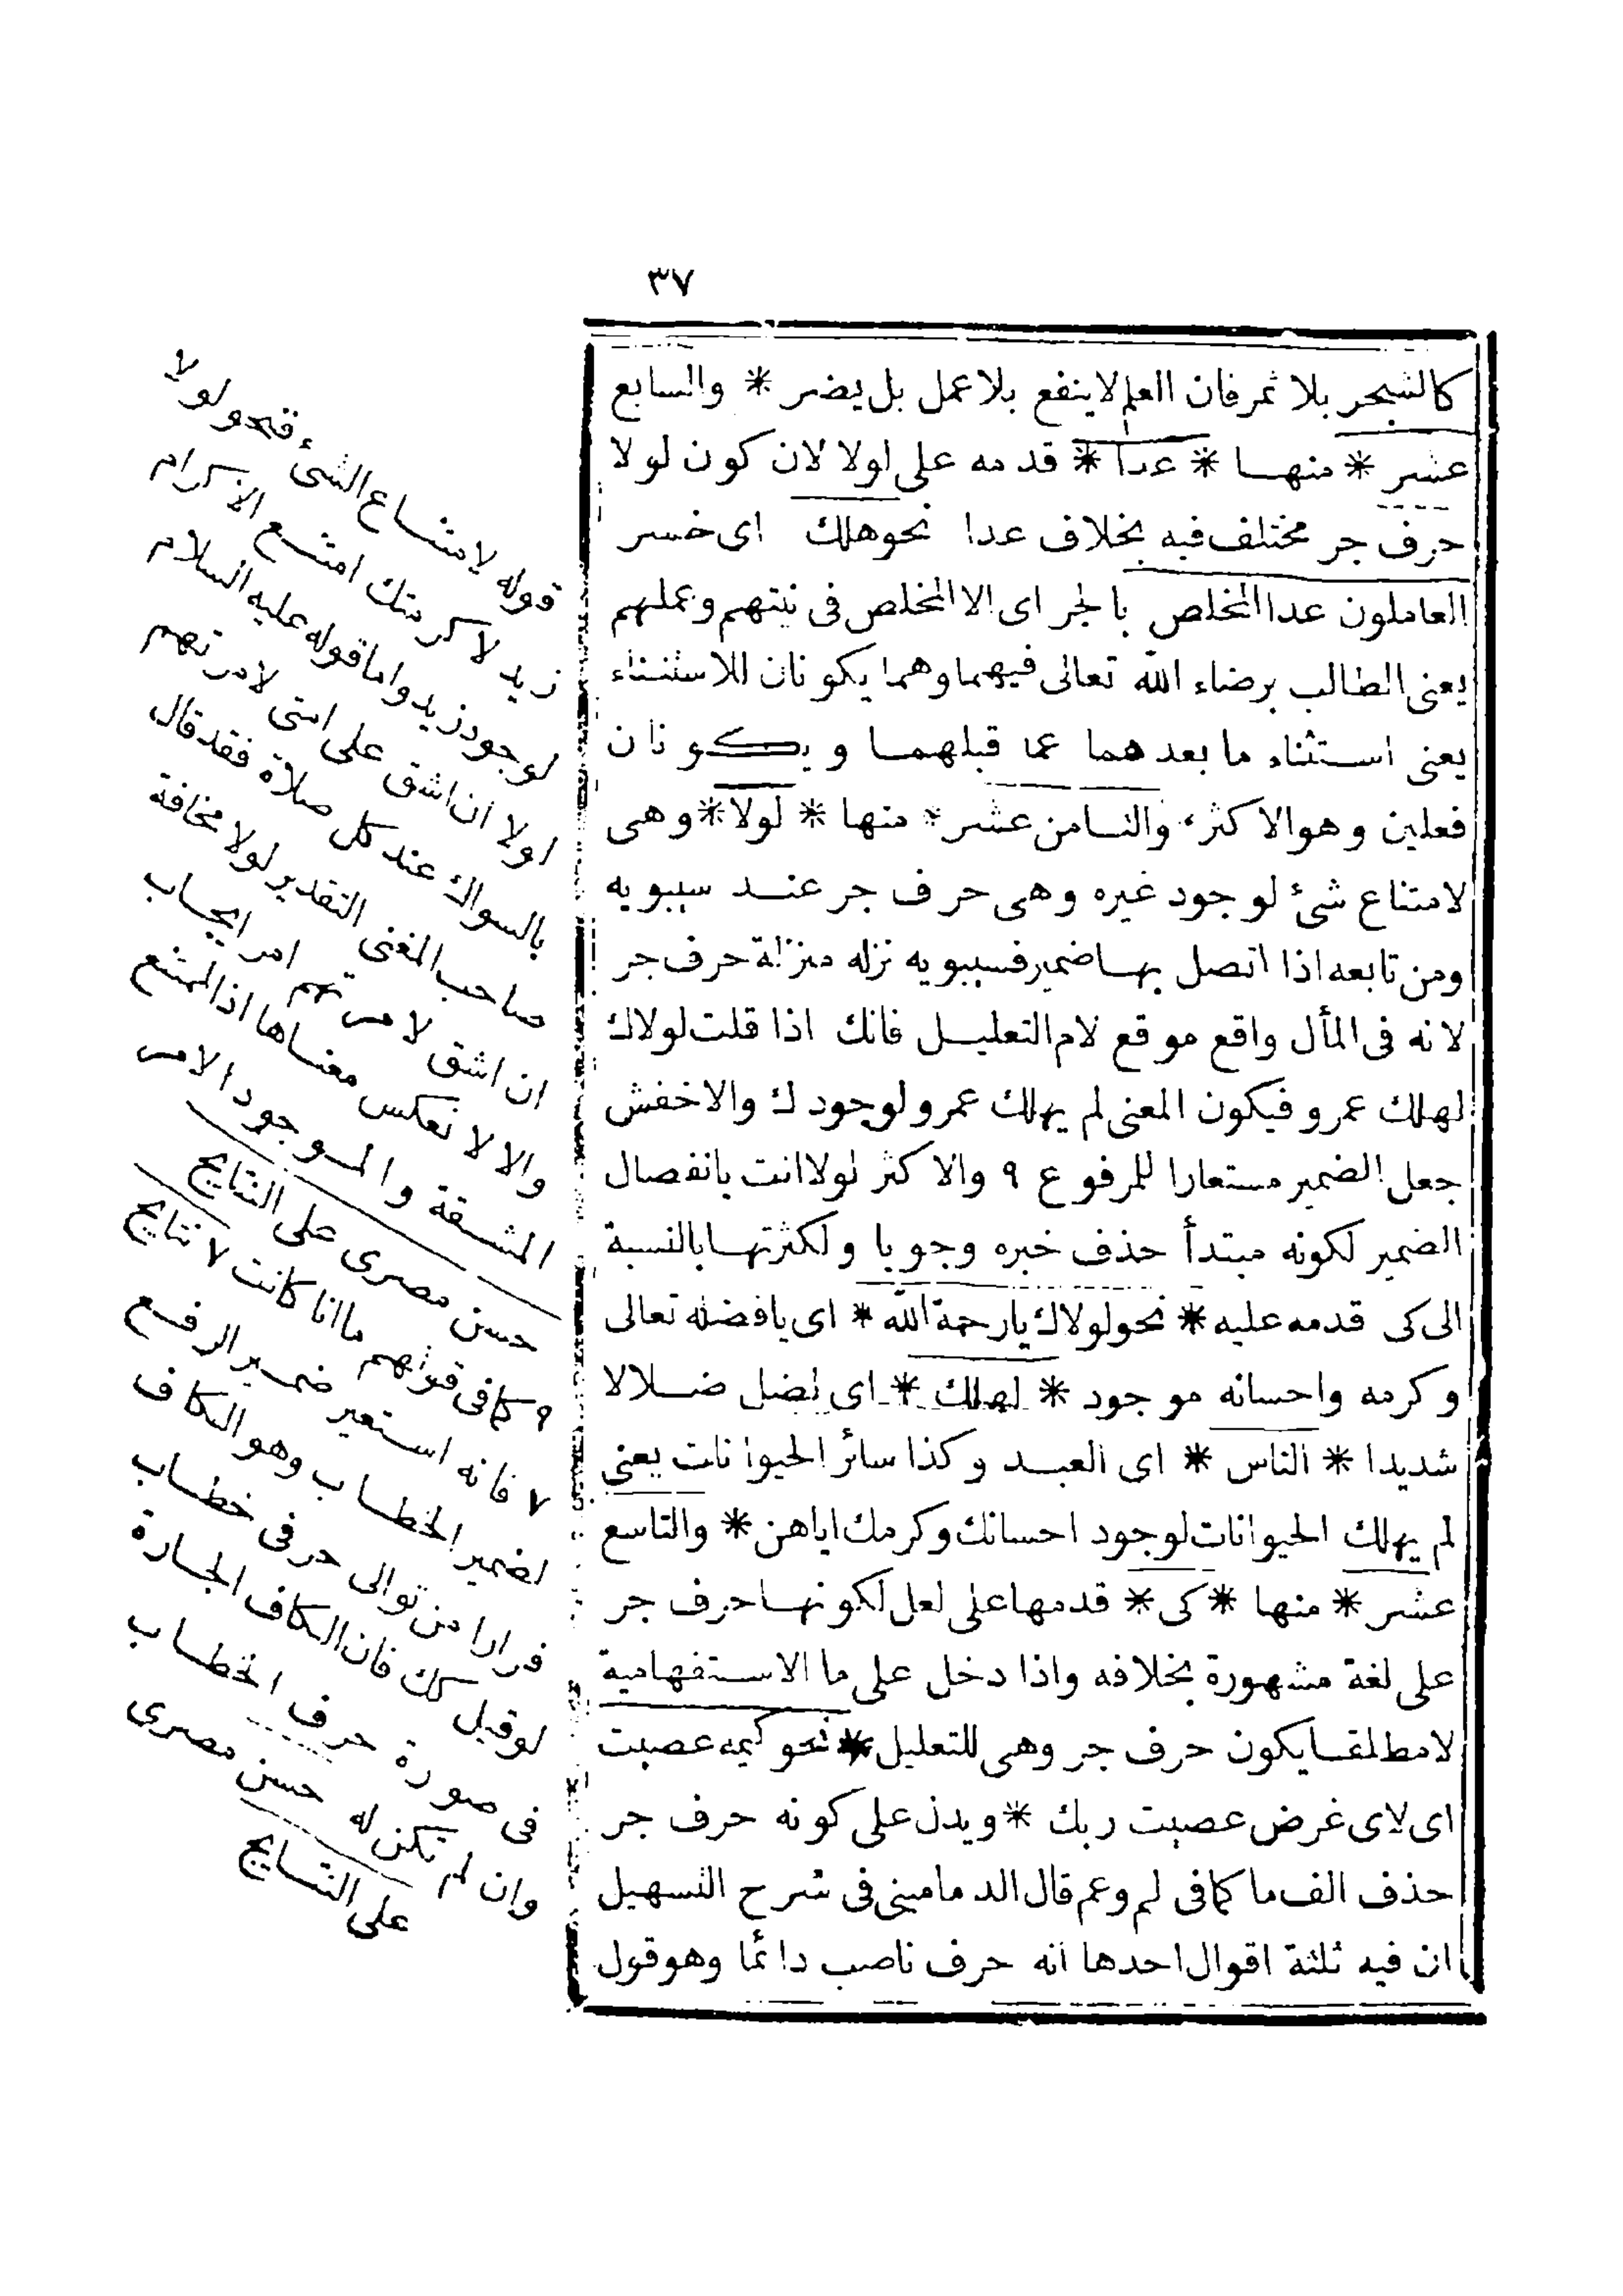 ٣٧
كالشجر بلا ثمر فان العلم لاينفع بلا عمل بل يضر * والسابع
عشر * منها * عدا * قدمه على لولا لان كون لولا
حرف جر مختلف فيه بخلاف عدا نحو هلك اى خسر
العاملون عدا المخلص بالجر اى الا المخلص فى نيتهم وعملهم
يعنى الطالب برضاء الله تعالى فيهما وهما يكونان للاستثناء
يعنى استثناء ما بعدهما عما قبلهما ويكونان
فعلين وهو الاكثر * والثامن عشر * منها * لولا * وهى
لامتناع شئ لوجود غيره وهى حرف جر عند سيبويه
ومن تابعه اذا اتصل بها ضمير فسيبويه نزله منزلة حرف جر
لانه فى المأل واقع موقع لام التعليل فانك اذا قلت لولاك
لهلك عمرو فيكون المعنى لم يهلك عمرو لوجودك والاخفش
جعل الضمير مستعارا للمرفوع ٩ والاكثر لولا انت بانفصال
الضمير لكونه مبتدأ حذف خبره وجوبا ولكثرتها بالنسبة
الى كى قدمه عليه * نحو لولاك يارحمة الله * اى يافضله تعالى
وكرمه واحسانه موجود * لهلك * اى لضل ضلالا
شديدا * الناس * اى العبد وكذا سائر الحيوانات يعنى
لم يهلك الحيوانات لوجود احسانك وكرمك اياهن * والتاسع
عشر * منها * كى * قدمها على لعل لكونها حرف جر
على لغة مشهورة بخلافه واذا دخل على ما الاستفهامية
لامطلقا يكون حرف جر وهى للتعليل * نحو كيمه عصيت
اى لاى غرض عصيت ربك * ويدل على كونه حرف جر
حذف الف ما كما فى لم وعم قال الدمامينى فى شرح التسهيل
ان فيه ثلثة اقوال احدها انه حرف ناصب دائما وهو قول
قوله لامتناع الشئ فنحو لولا
زيد لاكرمتك امتنع الاكرام
لوجود زيد واما قوله عليه السلام
لولا ان اشق على امتى لامرتهم
بالسواك عند كل صلاة فقد قال
صاحب المغنى التقدير لولا مخافة
ان اشق لامرتهم امر ايجاب
والا لا نعكس معناها اذا الممتنع
المشقة والموجود الامر
حسن مصرى على النتايج
٩ كما فى قولهم ما انا كانت ٧ نتايج
٧ فانه استعير ضمير الرفع
لضمير الخطاب وهو الكاف
فرارا من توالى حرفى خطاب
لوقيل كك فان الكاف الجارة
فى صورة حرف الخطاب
وان لم تكن له حسن مصرى
على النتايج